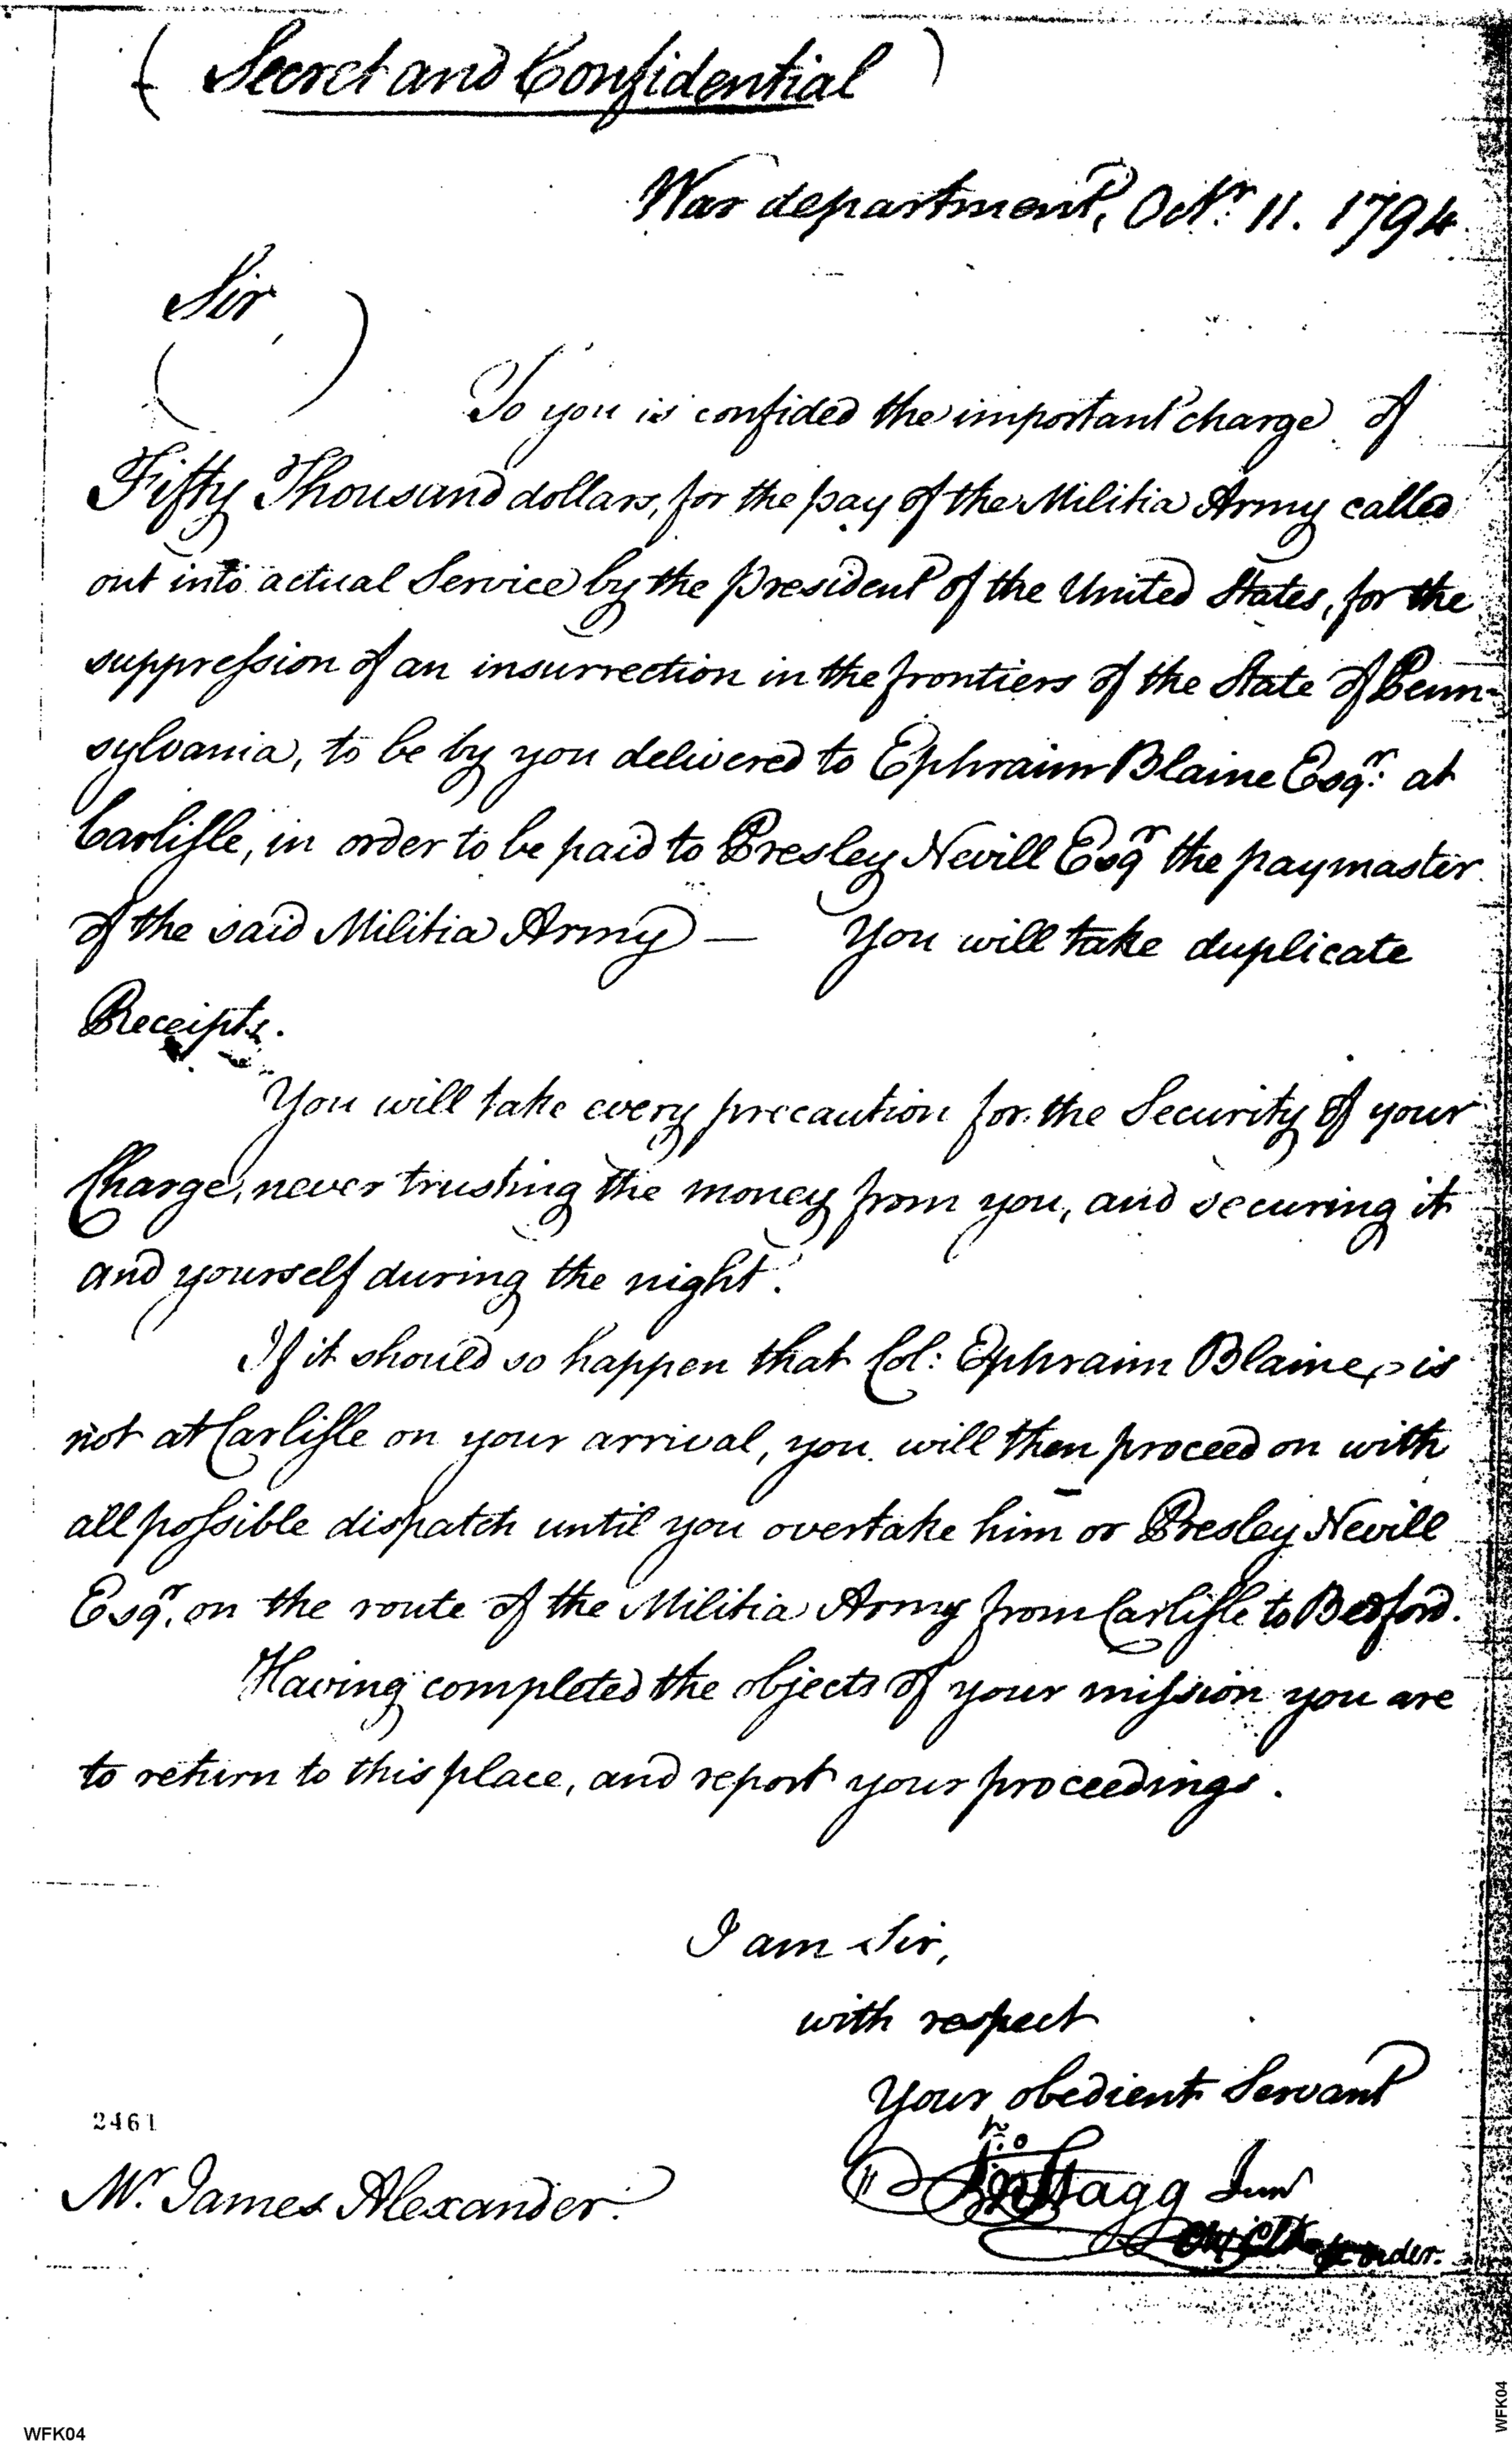 ( Secret and Confidential )
War department, Octr. 11. 1794
Sir
To you is confided the important charge of
Fifty Thousand dollars, for the pay of the Militia Army called
out into actual Service by the president of the United States, for the
suppression of an insurrection in the frontiers of the State of Penn-
sylvania, to be by you delivered to Ephraim Blaine Esqr: at
Carlisle, in order to be paid to Presley Nevill Esqr the paymaster
of the said Militia Army — You will take duplicate
Receipts.
You will take every precaution for the Security of your
Charge, never trusting the money from you, and securing it
and yourself during the night.
If it should so happen that Col: Ephraim Blaine, is
not at Carlisle on your arrival, you will then proceed on with
all possible dispatch until you overtake him or Presley Nevill
Esqr. on the route of the Militia Army from Carlisle to Bedford.
Having completed the objects of your mission you are
to return to this place, and report your proceedings.
I am Sir,
with respect
Your obedient Servant
2461
Jno Stagg Junr
Mr. James Alexander.
WFK04
WFK04